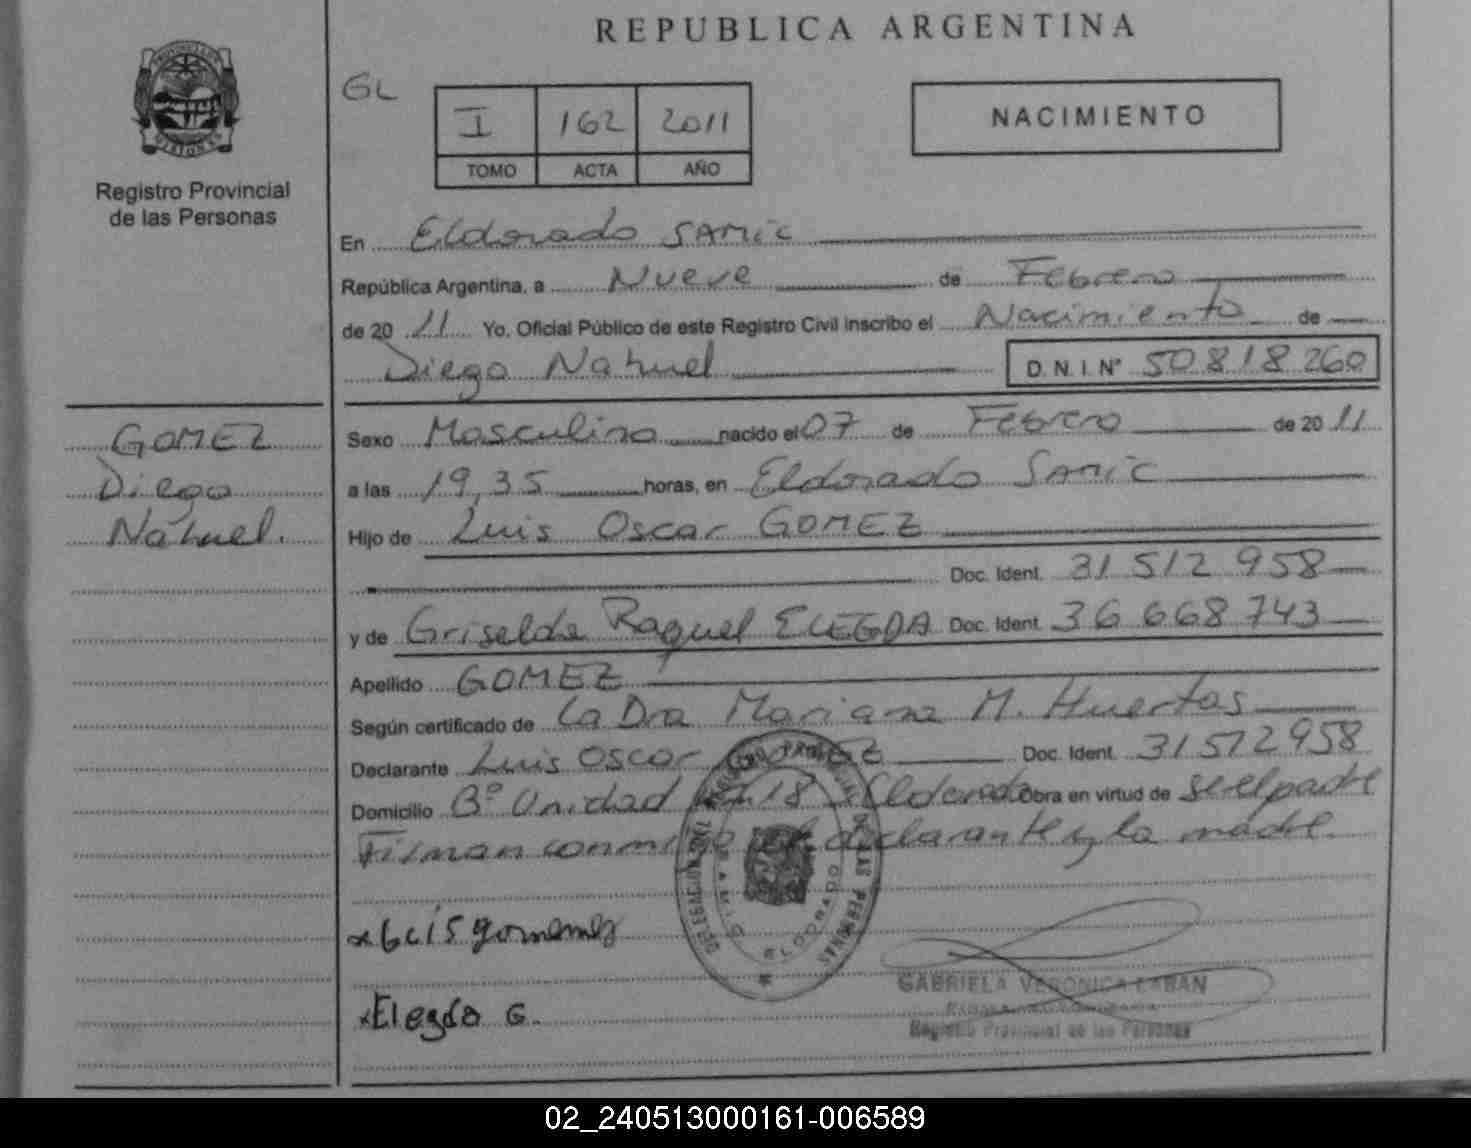 REPUBLICA ARGENTINA
PROVINCIA DE
MISIONES
Registro Provincial
de las Personas
GL
I 162 2011
TOMO ACTA AÑO
NACIMIENTO
En Eldorado SAMIC
República Argentina, a Nueve de Febrero
de 2011 Yo, Oficial Público de este Registro Civil inscribo el Nacimiento de
Diego Nahuel D.N.I. Nº 50 818 260
GOMEZ
Diego
Nahuel.
Sexo Masculino nacido el 07 de Febrero de 2011
a las 19,35 horas, en Eldorado SAMIC
Hijo de Luis Oscar GOMEZ
Doc. Ident. 31 512 958
y de Griselda Raquel ELEGDA Doc. Ident. 36 668 743
Apellido GOMEZ
Según certificado de La Dra Mariana M. Huertas
Declarante Luis Oscar GOMEZ Doc. Ident. 31 512 958
Domicilio Bº Unidad 18 Eldorado Obra en virtud de ser el padre
Firman conmigo el declarante y la madre.
DELEGACION DEL REGISTRO PROVINCIAL DE LAS PERSONAS
SAMIC
ELDORADO
x Luis gomemez
x Elegda G.
GABRIELA VERONICA LABAN
Registro Provincial de las Personas
02_240513000161-006589